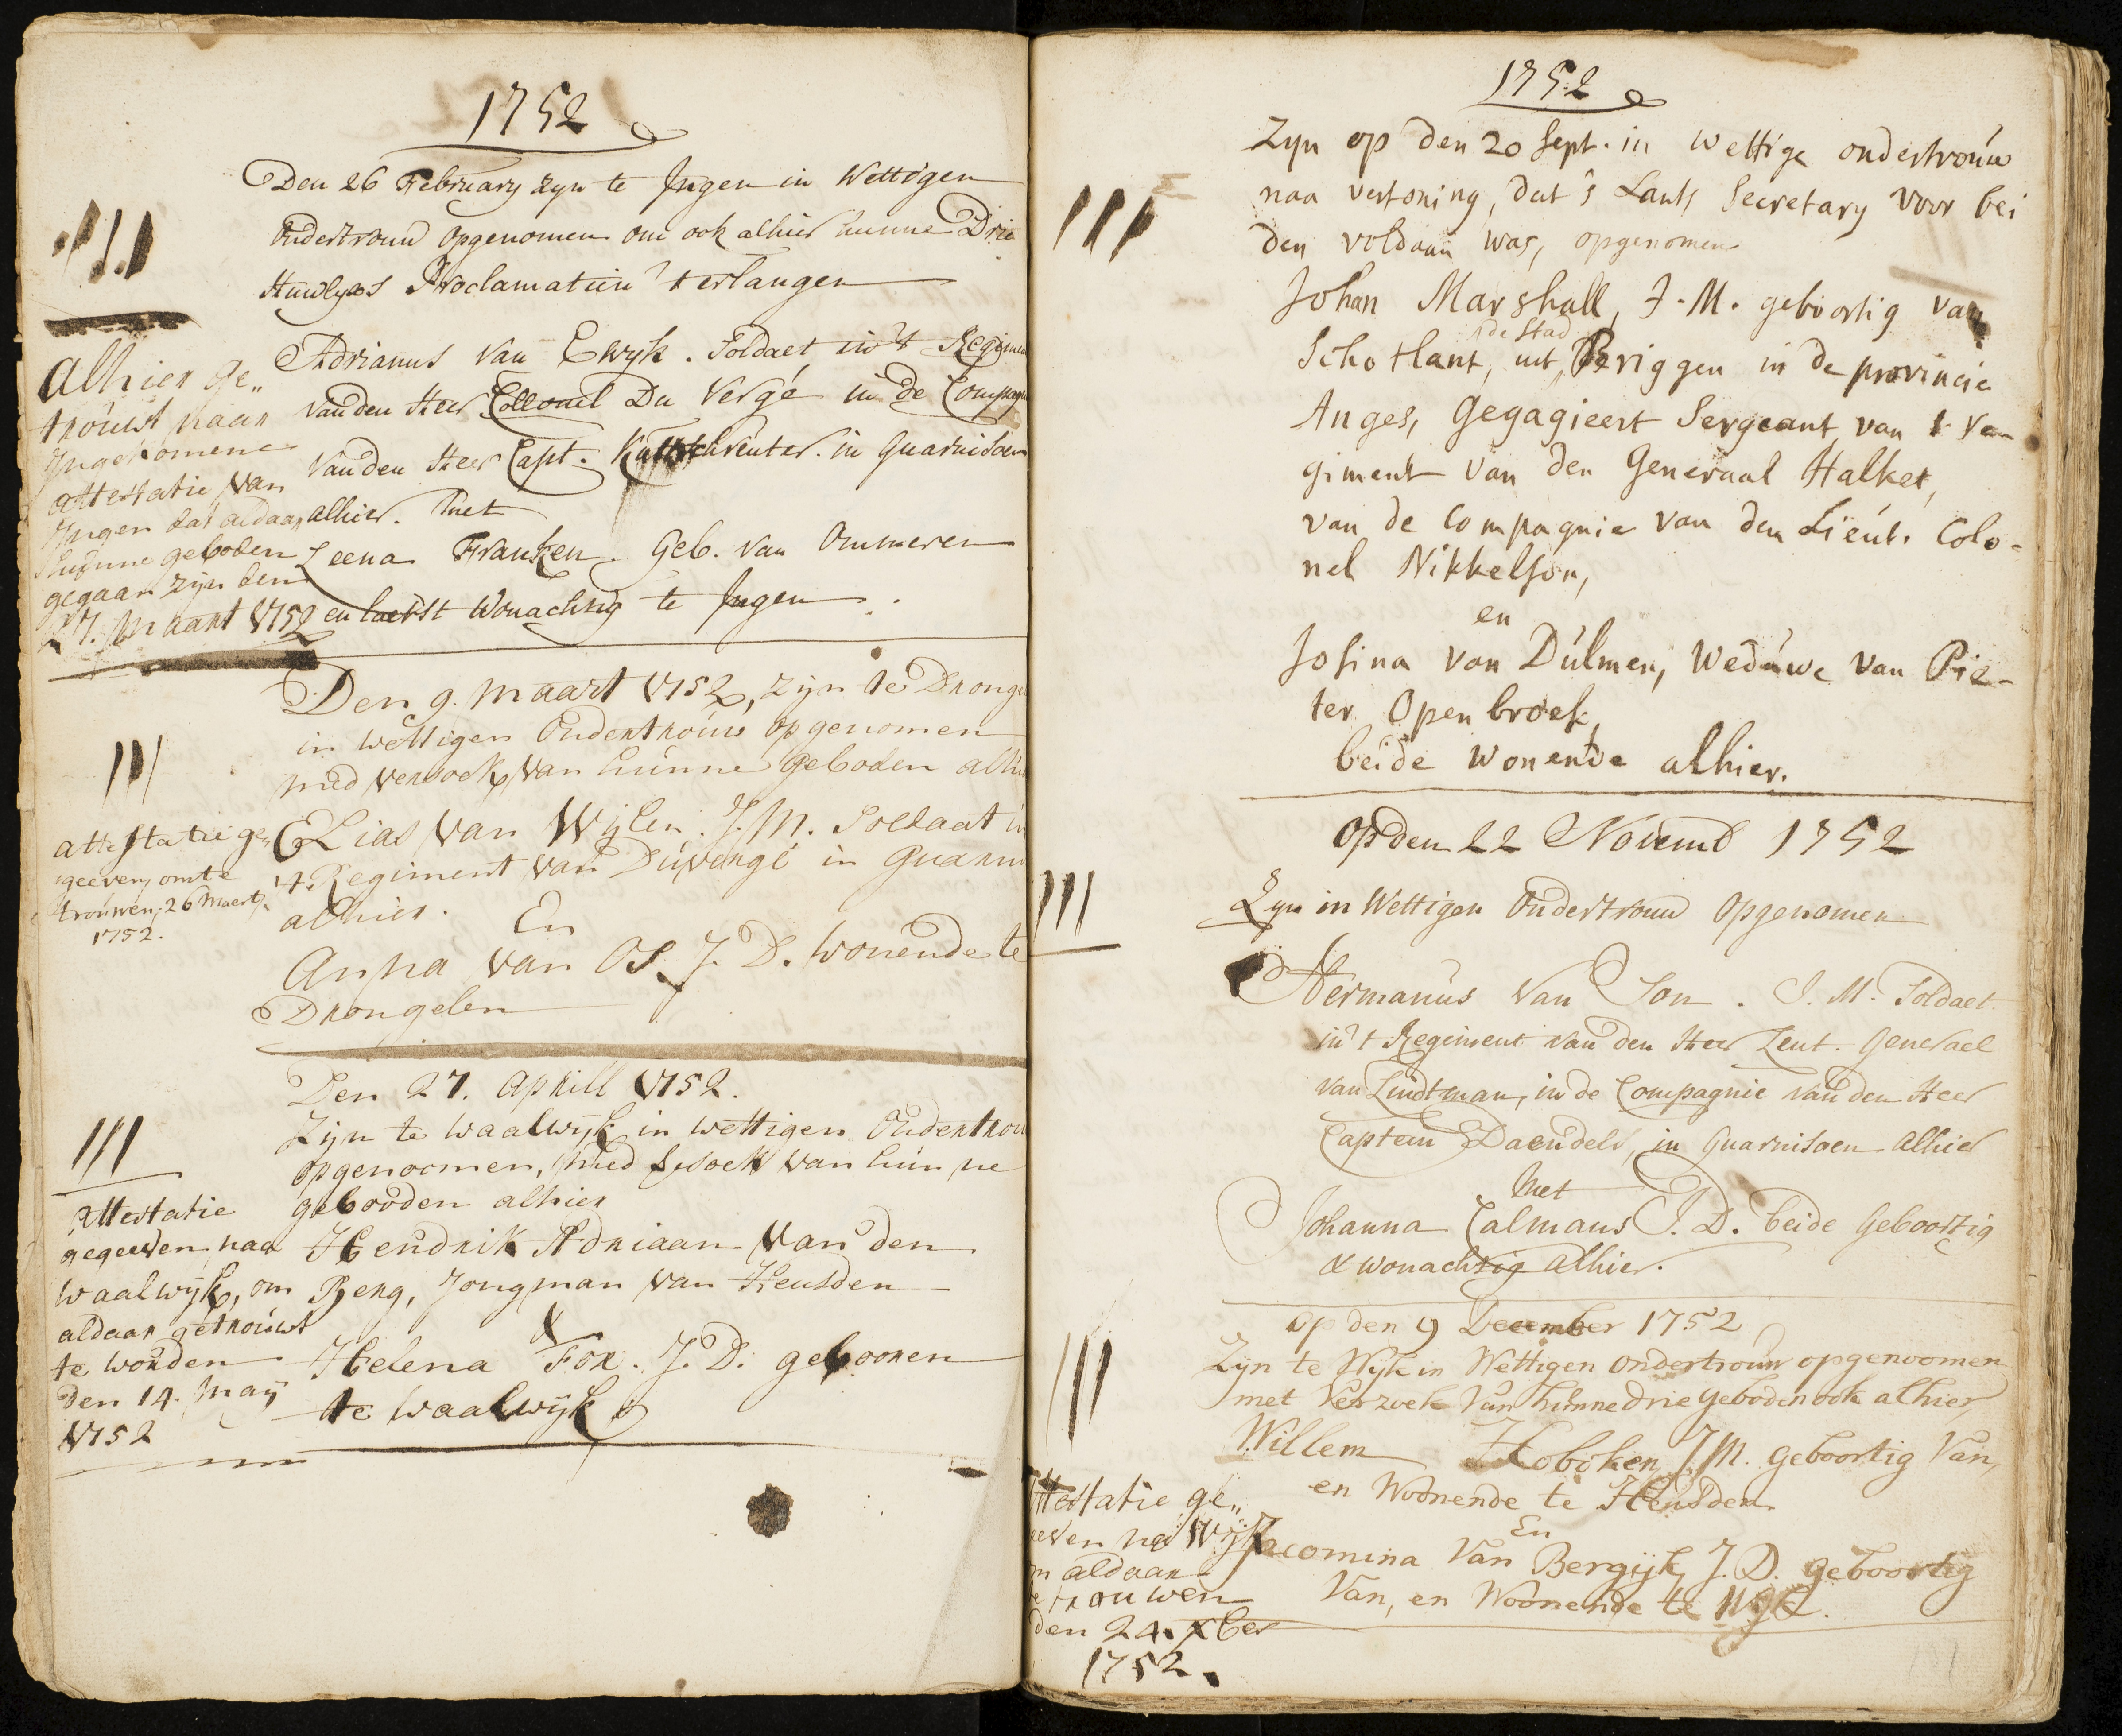 1752
Den 26 February zyn te Jngen in Wettigen
Ondertrouw opgenomen om ook alhier hunne Drie
Huwlyks Proclamatien t erlangen
Adrianus van Ewyk. Soldaet in 't Regimen
van den Heer Collonel Du Vergé in de Compagn
van den Heer Capt. in Guarnisoen
alhier. met
Leena Franken. Geb. van Ommeren
en laetst Wonachtig te Jngen
Alhier ge„
trouwt naar
Jngekomene
attestatie van
Jngen dat aldaar
Hunne geboden
gegaan zijn den
27. Maart 1752
Den 9. Maart 1752, zijn te Dronge
in wettigen Ondertrouw opgenomen
med versoek van hunne geboden alhie
Elias van Wijlen. J. M. Soldaat in
't Regiment van Duvergé in Guarni
alhier.
En
Anna van Os J. D. Wonende te
Drongelen
III
attestatie ge„
geeven, om te
trouwen, 26 Maert
1752.
Den 27. Aprill 1752.
Zijn te Waalwijk in wettigen Ondertrou
opgenoomen, med versoek van hun ne
gebooden alhier
Hendrik Adriaan van den
Berg, Jongman van Heusden
&
Helena For. J. D. gebooren
te Waalwijk
III
Attestatie
gegeeven naa
Waalwijk, om
aldaar getrouwt
te worden
den 14. Maij
1752
1752
Zyn op den 20 Sept. in wettige ondertrouw
naa vertoning, dat 's Lants Secretary voor bei
den voldaan was, opgenomen
Johan Marshall, J. M. geboortig van
de Stad
Schotlant, uit Periggen in de provincie
Anges, Gegagieert Sergeant van t Re-
giment van den Generaal Halket,
van de Compagnie van den Lieut. Colo-
nel Nikkelson,
en
Josina van Dulmen, Weduwe van Pie-
ter Openbroek,
beide wonende alhier.
III
op den 22 Novemb 1752
Zyn in Wettigen Ondertrouw Opgenomen
Hermanus van Son. J. M. Soldaet
in 't Regiment van den Heer Leut. Generael
van Lindtman, in de Compagnie van den Heer
Captein Daendels, in Guarnisoen Alhier
Met
Johanna Calmans J. D. beide Geboortig
& wonachtig alhier.
III
op den 9 December 1752
Zyn te Wyk in Wettigen ondertrouw opgenoomen
met Verzoek van hunne drie geboden ook alhier,
Willem Hoboken J. M. geboortig Van,
en Woonende te Heusden
En
Jacomina Van Bergijk J. D. geboortig
Van, en Woonende te Wyk.
III
ttestatie ge„
eeven na Wijk
m aldaar
te trouwen
den 24. Xber
1752.